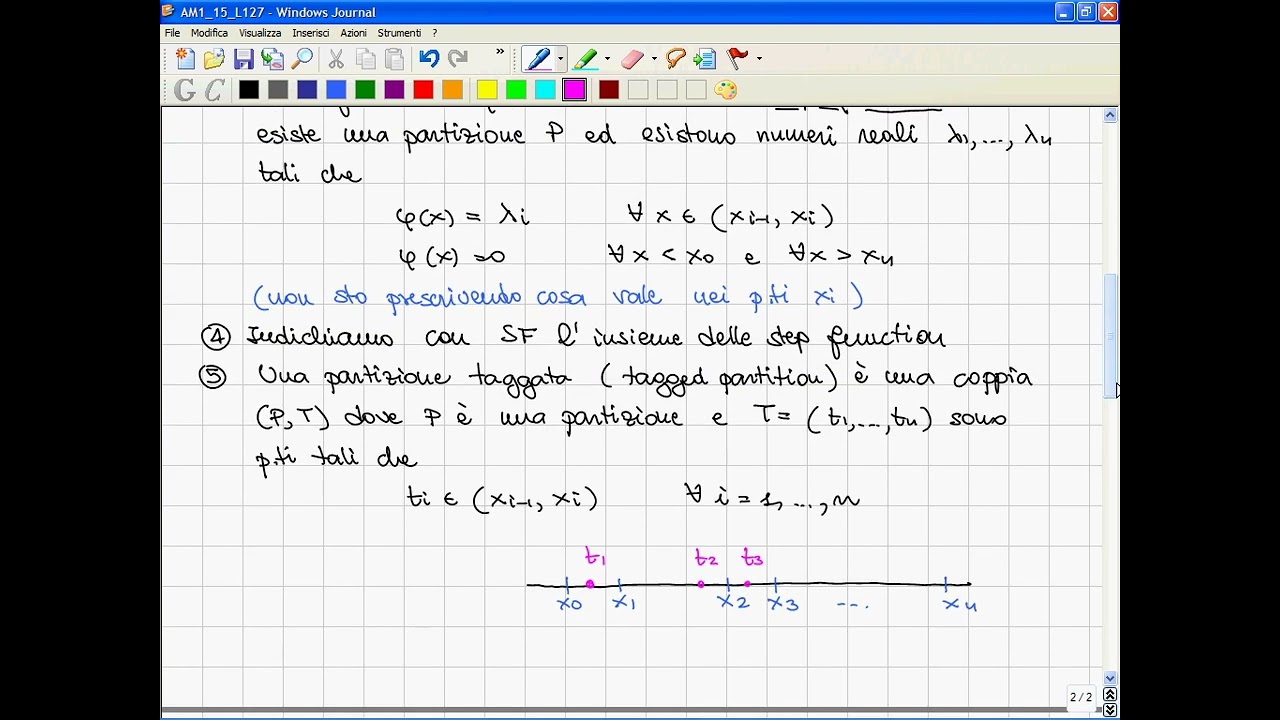 AM1_15_L127 - Windows Journal
File Modifica Visualizza Inserisci Azioni Strumenti ?
esiste una partizione P ed esistono numeri reali λ1,...,λn
tali che
φ(x) = λi ∀ x ∈ (xi-1, xi)
φ(x) =0 ∀x < x0 e ∀x > xn
(non sto prescrivendo cosa vale nei p.ti xi)
④ Indichiamo con SF l'insieme delle step function
⑤ Una partizione taggata (tagged partition) è una coppia
(P,T) dove P è una partizione e T= (t1,...,tn) sono
p.ti tali che
ti ∈ (xi-1, xi) ∀ i = 1, ..., n
t1 t2 t3
x0 x1 x2 x3 ... xn
2 / 2